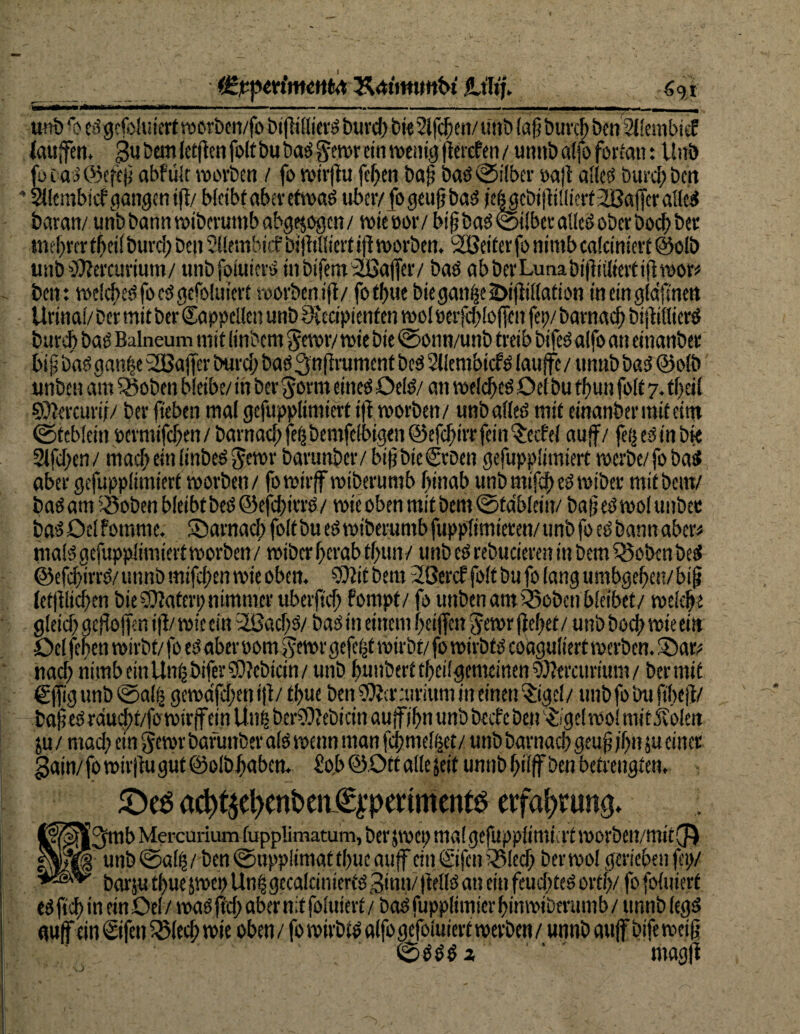 Experimenta Raimundi Lulij. 691
und so es gesoluiert worden/so distilliers durch die Aschen/ und laß durch den Alembick
lauffen. Zu dem letsten solt du das Fewr ein wenig stercken / unnd also fortan: Und
so das Gefeß abkült worden / so wirstu sehen daß das Silber vast alles durch den
Alembick gangen ist/ bleibt aber etwas uber/ so geuß das jetzgedistilliert Wasser alles
daran/ und dann widerumb abgezogen/ wie vor/ biß das Silber alles oder doch der
mehrer theil durch den Alembick distilliert ist worden. Weiter so nimb calciniert Gold
und Mercurium/ und soluiers in disem Wasser/ das ab der Luna distilliert ist wor-
den: welches so es gesoluiert worden ist/ so thue die gantze Distillation in ein gläsinen
Urinal/ der mit der Cappellen und Recipienten wol verschlossen sey/ darnach distilliers
durch das Balneum mit lindem Fewr/ wie die Sonn/und treib dises also an einander
biß das gantze Wasser durch das Instrument des Alembicks lauffe/ unnd das Gold
unden am Boden bleibe/ in der Form eines Oels/ an welches Oel du thun solt 7. theil
Mercurij/ der sieben mal gesupplimiert ist worden/ und alles mit einander mit eim
Steblein vermischen/ darnach setz demselbigen Geschirr sein Deckel auff/ setz es in die
Aschen/ mach ein lindes Fewr darunder/ biß die Erden gesupplimiert werde/ so das
aber gesupplimiert worden/ so wirff widerumb hinab und misch es wider mit dem/
das am Boden bleibt des Geschirrs/ wie oben mit dem Stäblein/ daß es wol under
das Oel komme. Darnach solt du es widerumb supplimieren/ und so es dann aber-
mals gesupplimiert worden/ wider herab thun/ und es reducieren in dem Boden des
Geschirrs/ unnd mischen wie oben. Mit dem Werck solt du so lang umbgehen/ biß
letstlichen die Matery nimmer ubersich kompt/ so unden am Boden bleibet/ welche
gleich geflossen ist/ wie ein Wachs/ das in einem heissen Fewr stehet/ und doch wie ein
Oel sehen wirdt/ so es aber vom Fewr gesetzt wirdt/ so wirdts coaguliert werden. Dar-
nach nimb ein Untz diser Medicin/ und hundert theil gemeinen Mercurium/ der mit
Essig und Saltz gewäschen ist/ thue den Mercurium in einen Tigel/ und so du sihest/
daß es räucht/so wirff ein Untz der Medicin auff ihn und decke den Tigel wol mit Kolen
zu/ mach ein Fewr darunder als wenn man schmeltzet/ und darnach geuß ihn zu einer
Zain/ so wirstu gut Gold haben. Lob Gott alle zeit unnd hilff den betrengten.
Des achtzehenden Experiments erfahrung.
Nimb Mercurium supplimatum, der zwey mal gesupplimiert worden/mit 🜖
und Saltz/ den Supplimat thue auff ein Eisen Blech der wol gerieben sey/
darzu thue zwey Untz gecalcinierts Zinn/ stells an ein feuchtes orth/ so soluiert
es sich in ein Oel/ was sich aber nit soluiert/ das supplimier hinwiderumb/ unnd legs
auff ein Eisen Blech wie oben/ so wirdts also gesoluiert werden/ unnd auff dise weiß
Ssss 2 magst